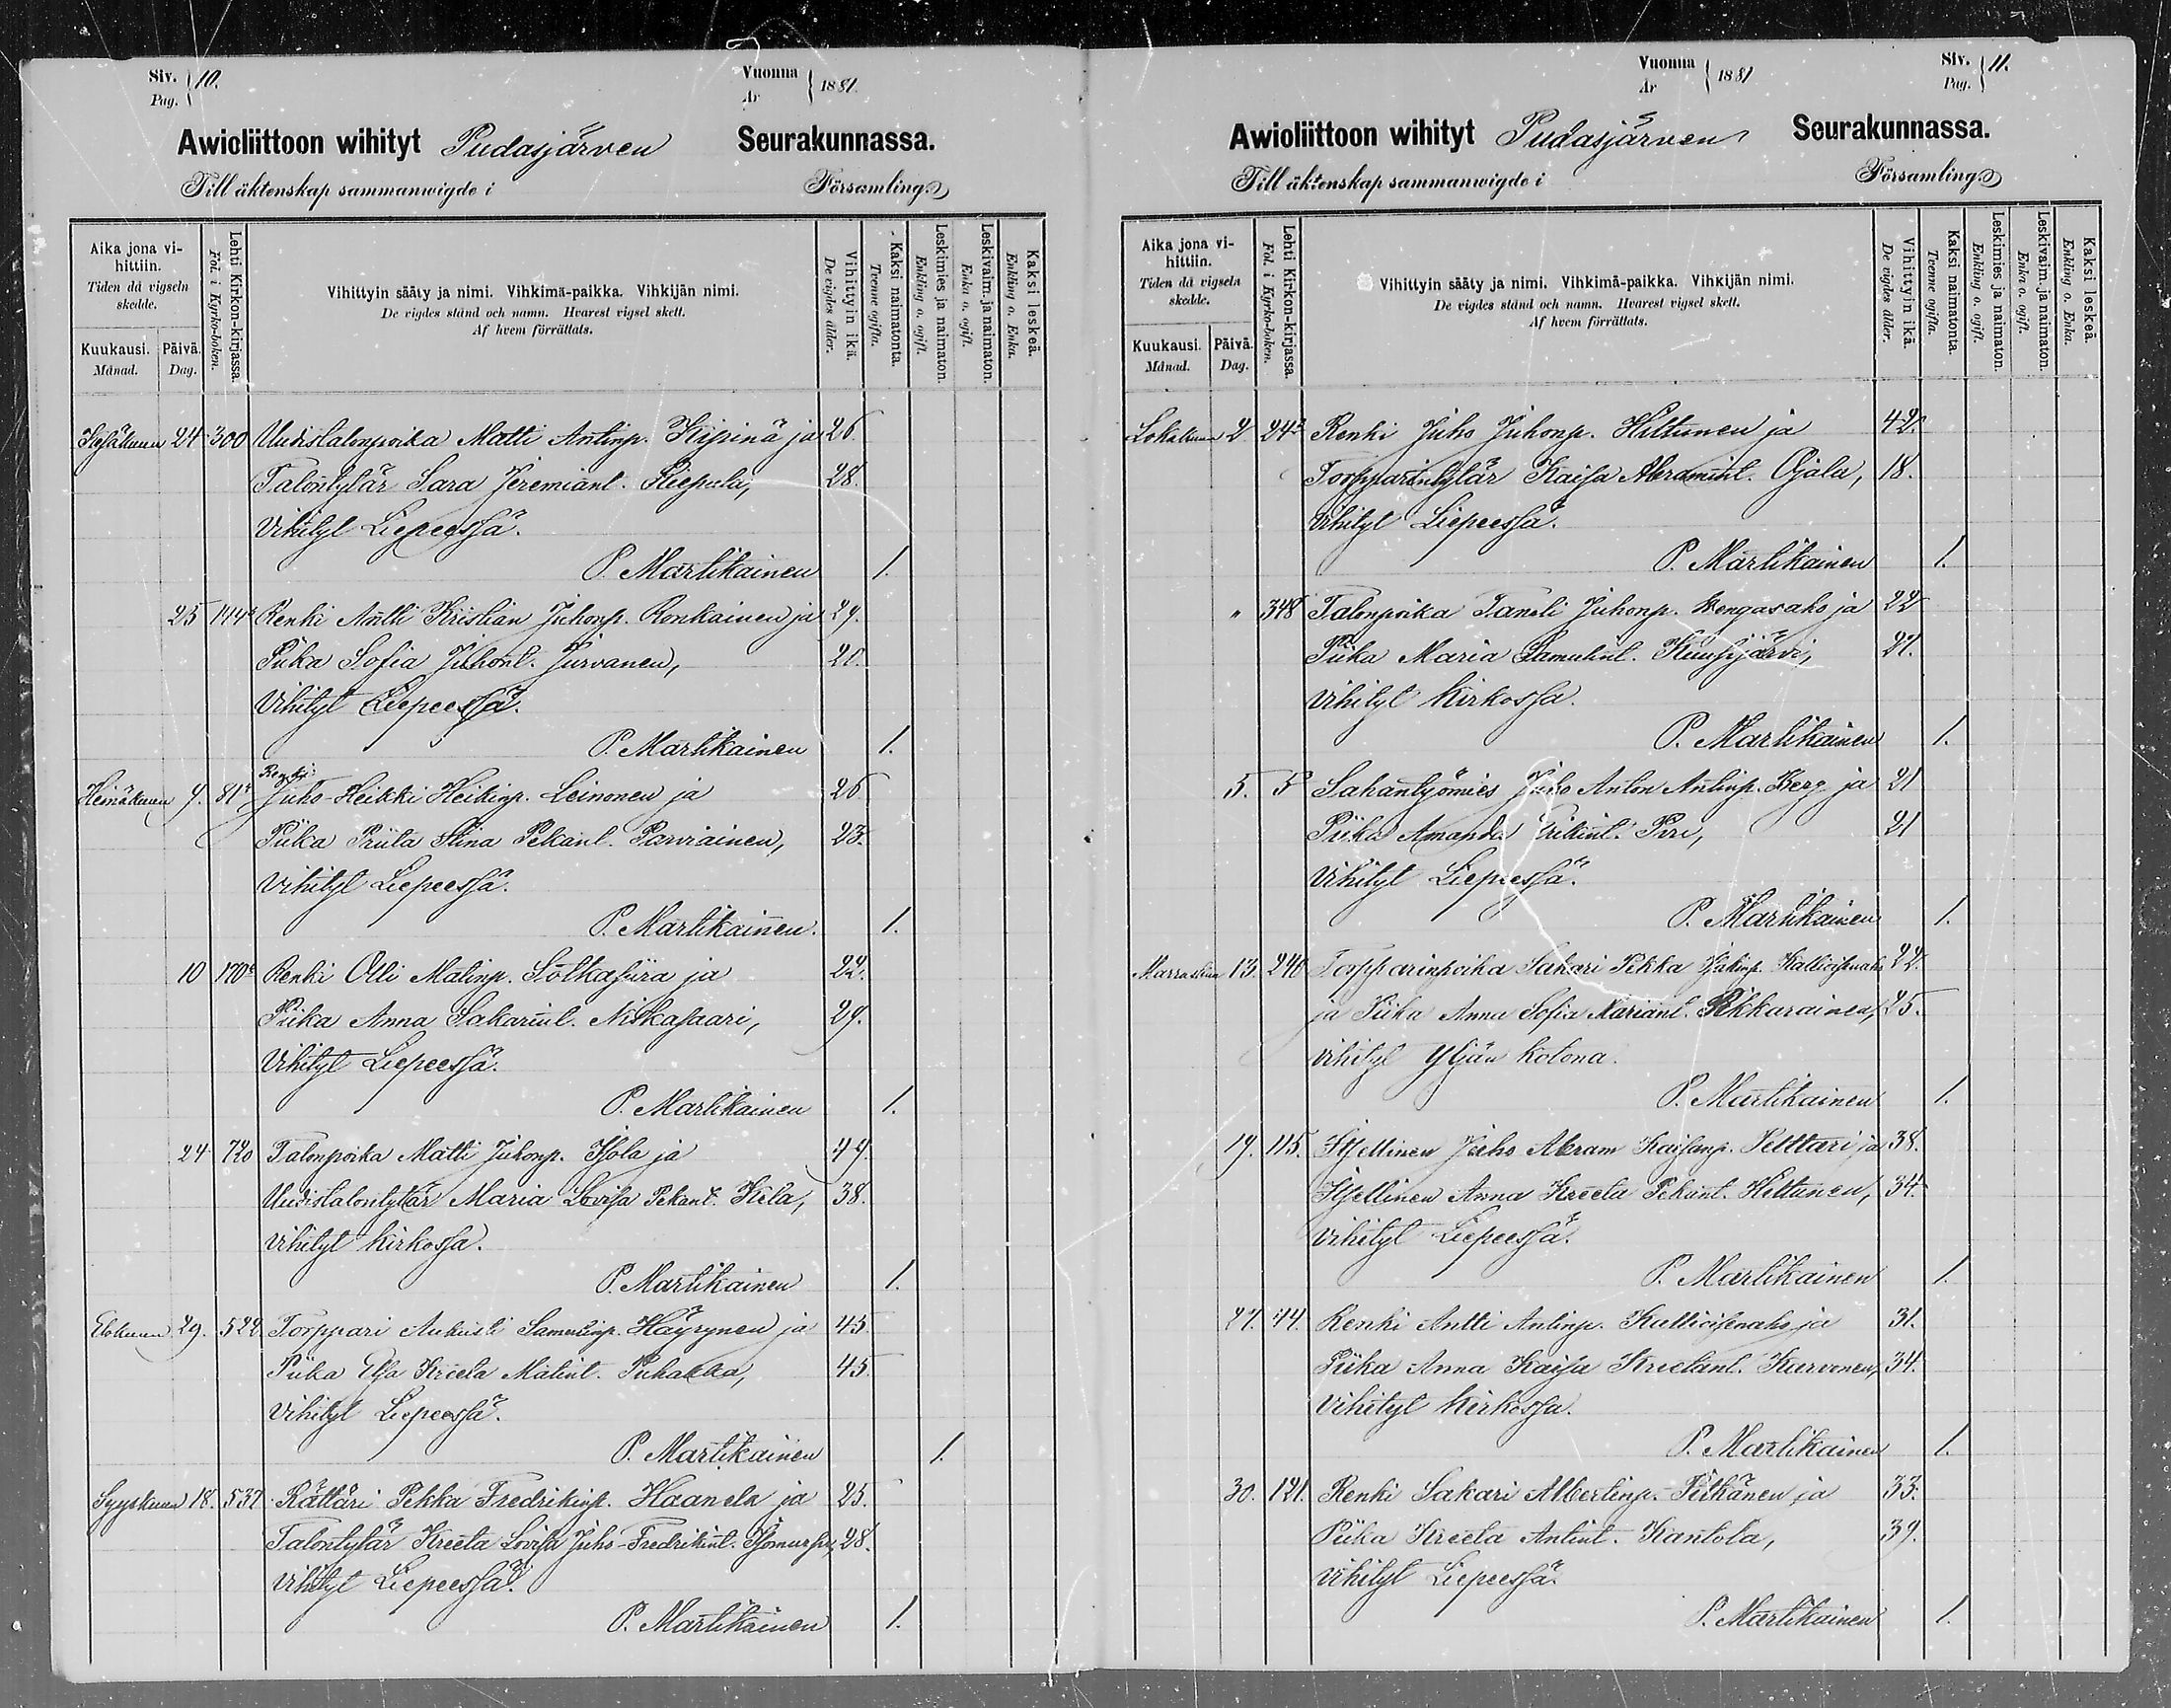 Siv. 10.
Pag.
Vuonna 1881.
År
Awioliittoon wihityt Pudasjärven Seurakunnassa.
Till äktenskap sammanwigde i Församling.
Aika jona vihittiin.
Tiden då vigseln skedde.
Kuukausi. Månad.
Päivä. Dag.
Lehti Kirkon-kirjassa.
Fol. i Kyrko-boken.
Vihittyin sääty ja nimi. Vihkimä-paikka. Vihkijän nimi.
De vigdes stånd och namn. Hvarest vigsel skett.
Af hvem förrättats.
Vihittyin ikä.
De vigdes ålder.
Kaksi naimatonta.
Tvenne ogifta.
Leskimies ja naimaton.
Enkling o. ogift.
Leskivaim. ja naimaton.
Enka o. ogift.
Kaksi leskeä.
Enkling o. Enka.
Kesäkuun 24 300 Uudistalonpoika Matti Antinp. Kipinä ja 26.
Talontytär Sara Jeremiant. Liepula, 28.
Vihityt Liepeessä.
P. Martikainen 1.
25 144 Renki Antti Kristian Juhonp. Ronkainen ja 29.
Piika Sofia Juhont. Jurvanen, 20.
Vihityt Liepeessä.
P. Martikainen 1.
Heinäkuun 9. 81 Renki Juho-Heikki Heikinp. Leinonen ja 26
Piika Priita Stina Pekant. Parviainen, 23.
Vihityt Liepeessä.
P. Martikainen. 1.
10 170 Renki Olli Matinp. Sotkasiira ja 22.
Piika Anna Sakarint. Niskasaari, 29.
Vihityt Liepeessä.
P. Martikainen 1.
24 720 Talonpoika Matti Juhonp. Isola ja 49.
Uudistalontytär Maria Lovisa Pekant. Kela, 38.
Vihityt kirkossa.
P. Martikainen 1.
Elokuun 29. 522 Torppari Aukusti Samulinp. Häyrynen ja 45
Piika Elsa Kreeta Matint. Puhakka, 45.
Vihityt Liepeessä.
P. Martikainen 1.
Syyskuun 18. 537 Rättäri Pekka Fredrikinp. Haanela ja 25.
Talontytär Kreeta Lovisa Juho-Fredrikint. 28.
Vihityt Liepeessä.
P. Martikainen 1.
Vuonna 1881
År
Siv. 11.
Pag.
Awioliittoon wihityt Pudasjärven Seurakunnassa.
Till äktenskap sammanwigde i Församling.
Aika jona vihittiin.
Tiden då vigseln skedde.
Kuukausi. Månad.
Päivä. Dag.
Lehti Kirkon-kirjassa.
Fol. i Kyrko-boken.
Vihittyin sääty ja nimi. Vihkimä-paikka. Vihkijän nimi.
De vigdes stånd och namn. Hvarest vigsel skett.
Af hvem förrättats.
Vihittyin ikä.
De vigdes ålder.
Kaksi naimatonta.
Tvenne ogifta.
Leskimies ja naimaton.
Enkling o. ogift.
Leskivaim. ja naimaton.
Enka o. ogift.
Kaksi leskeä.
Enkling o. Enka.
Lokakuun 2 242 Renki Juho Juhonp. Hiltunen ja 42.
Torpparintytär Kaisa Abramint. Ojala, 18.
Vihityt Liepeessä.
P. Martikainen 1.
" 348 Talonpoika Taneli Juhonp. Kengasaho ja 22
Piika Maria Samulint. Kuusijärvi, 21.
Vihityt Kirkossa.
P. Martikainen 1.
5. 5 Sahantyömies Juho Anton Antinp. Berg ja 21
Piika Amanda Erikint. Piri, 21
Vihityt Liepeessä.
P. Martikainen 1.
Marraskuun 13. 240 Torpparinpoika Sakari Pekka Kallioisenaho 22.
ja Piika Anna Sofia Mariant. Pikkarainen, 25.
vihityt Yljän kotona.
P. Martikainen 1.
19. 115. Itsellinen Juho Abram Kaisanp. Pelttari ja 38.
Itsellinen Anna Kreeta Pekant. Hiltunen, 34.
Vihityt Liepeessä.
P. Martikainen 1.
27. 44. Renki Antti Antinp. Kallioisenaho ja 31.
Piika Anna Kaisa Kreetant. Kurvonen, 34.
Vihityt Kirkossa.
P. Martikainen 1.
30. 121. Renki Sakari Albertinp. Pitkänen ja 33.
Piika Kreeta Antint. Kantola, 39.
Vihityt Liepeessä.
P. Martikainen 1.